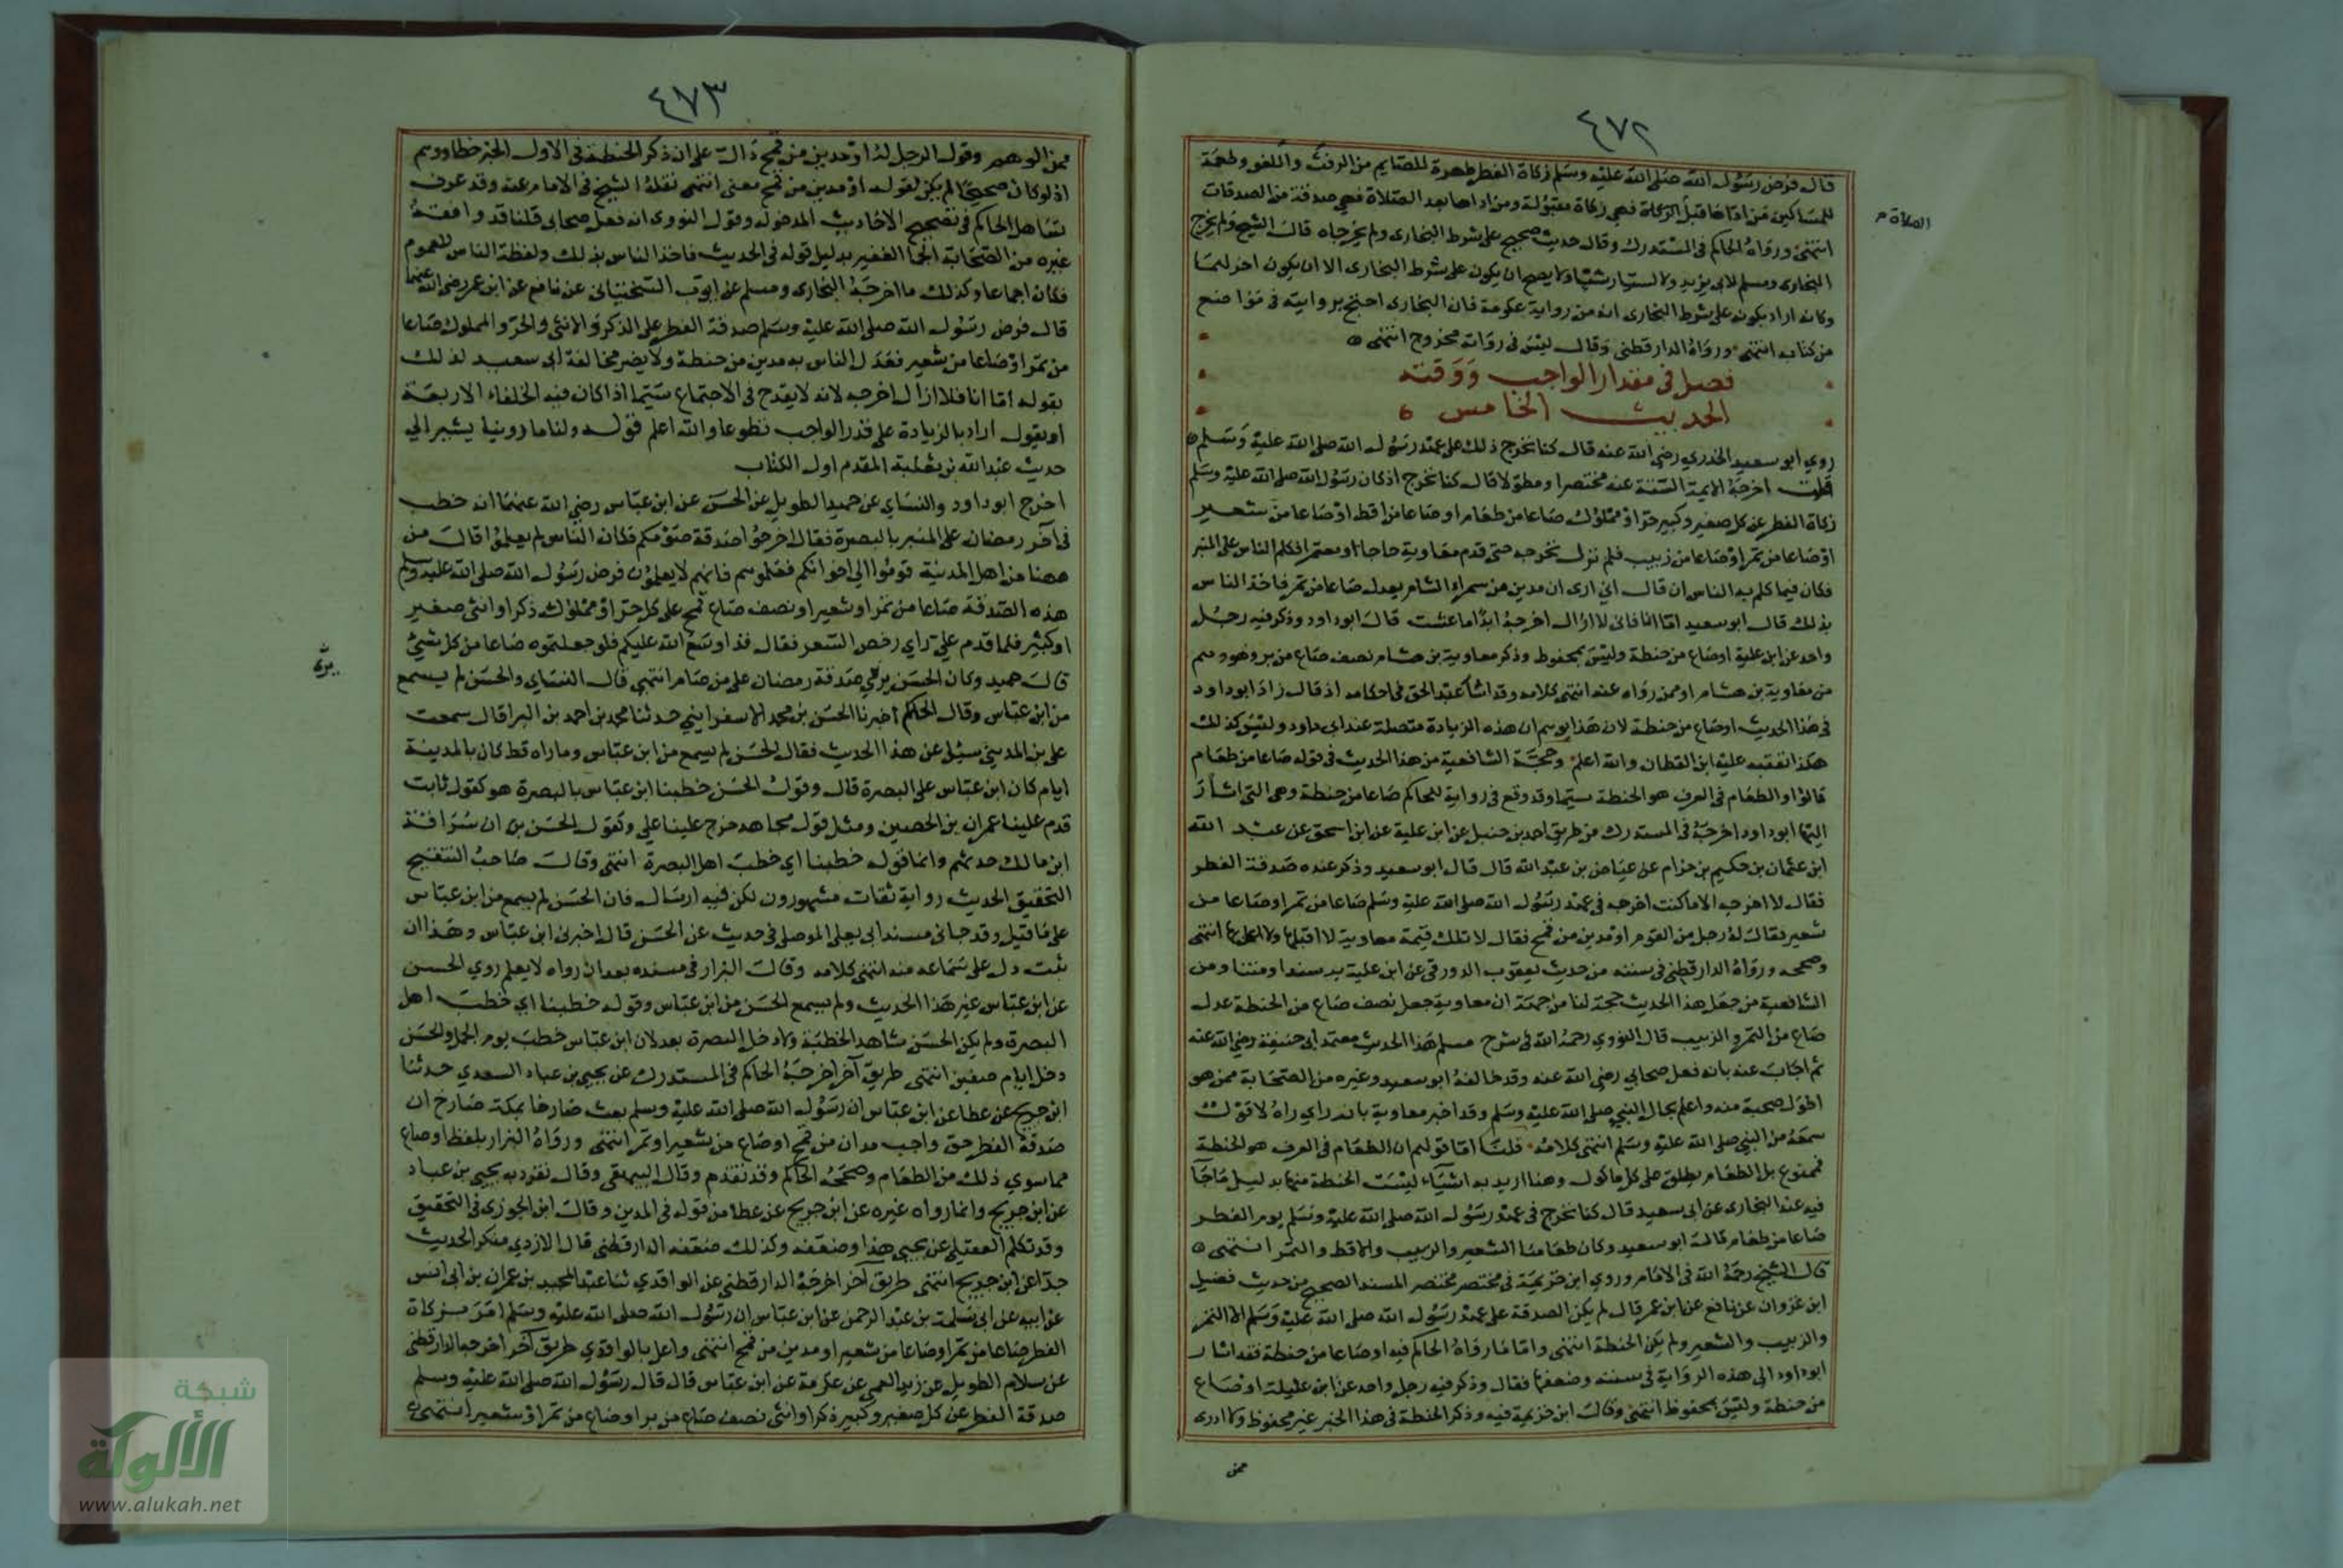 ٤٧٢
قال فرض رسول الله صلى الله عليه وسلم زكاة الفطر طهرة للصايم من الرفث واللغو وطعمة
للمساكين من اداها قبل الزكاة فهي زكاة مقبولة ومن اداها بعد الصلاة فهي صدقة من الصدقات
الصلاة م
انتهى ورواه الحاكم في المستدرك وقال حديث صحيح على شرط البخارى ولم يخرجاه قال الشيخ ولم يخرج
البخارى ومسلم لابي يزيد ولا لسيار شيا ولا يصح ان يكون على شرط البخارى الا ان يكون اخرج لهما
وكانه اراد بكونه على شرط البخارى انه من رواية عكرمة فان البخارى احتج بروايته في مواضع
من كتابه انتهى ورواه الدارقطنى وقال ليس في رواته مجروح انتهى
فصل في مقدار الواجب ووقته
الحديث الخامس
روي ابو سعيد الخدري رضي الله عنه قال كنا نخرج ذلك على عهد رسول الله صلى الله عليه وسلم
قلت اخرجه الايمة الستة عنه مختصرا ومطولا قال كنا نخرج اذ كان رسول الله صلى الله عليه وسلم
زكاة الفطر عن كل صغير وكبير حر او مملوك صاعا من طعام او صاعا من اقط او صاعا من شعير
او صاعا من تمر او صاعا من زبيب فلم نزل نخرجه حتى قدم معاوية حاجا او معتمرا فكلم الناس على المنبر
فكان فيما كلم به الناس ان قال اني ارى ان مدين من سمراء الشام يعدل صاعا من تمر فاخذ الناس
بذلك قال ابو سعيد اما انا فاني لا ازال اخرجه ابدا ما عشت قال ابو داود وذكر فيه رجل
واحد عن ابن علية او صاع من حنطة وليس بمحفوظ وذكر معاوية بن هشام نصف صاع من بر وهو وهم
من معاوية بن هشام او ممن رواه عنه انتهى كلامه وقد اشا عبد الحق في احكامه اذ قال زاد ابو داود
في هذا الحديث او صاع من حنطة لان هذا يوهم ان هذه الزيادة متصلة عند ابي داود وليس كذلك
هكذا تعقبه عليه ابن القطان والله اعلم وحجة الشافعية من هذا الحديث في قوله صاعا من طعام
قالوا والطعام في العرف هو الحنطة سيما وقد وقع في رواية للحاكم صاعا من حنطة وهي التي اشار
اليها ابو داود اخرجه في المستدرك من طريق احمد بن حنبل عن ابن علية عن ابن اسحق عن عبد الله
ابن عثمان بن حكيم بن حزام عن عياض بن عبد الله قال قال ابو سعيد وذكر عنده صدقة الفطر
فقال لا اخرجه الا ما كنت اخرجه في عهد رسول الله صلى الله عليه وسلم صاعا من تمر او صاعا من
شعير فقال له رجل من القوم او مدين من قمح فقال لا تلك قيمة معاوية لا اقبلها ولا اعمل بها انتهى
وصححه ورواه الدارقطنى في سننه من حديث يعقوب الدورقى عن ابن علية به سندا ومتنا ومن
الشافعية من جعل هذا الحديث حجة لنا من جهة ان معاوية جعل نصف صاع من الحنطة عدل
صاع من التمر والزبيب قال النووي رحمه الله في شرح مسلم هذا الحديث معتمد ابي حنيفة رضي الله عنه
ثم اجاب عنه بانه فعل صحابي رضي الله عنه وقد خالفه ابو سعيد وغيره من الصحابة ممن هو
اطول صحبة منه واعلم بحال النبي صلى الله عليه وسلم وقد اخبر معاوية بانه راي راه لا قول
سمعه من النبي صلى الله عليه وسلم انتهى كلامه قلنا اما قولهم ان الطعام في العرف هو الحنطة
فممنوع بل الطعام يطلق على كل ماكول وهنا اريد به اشياء ليست الحنطة منها بدليل ماجا
فيه عند البخارى عن ابى سعيد قال كنا نخرج في عهد رسول الله صلى الله عليه وسلم يوم الفطر
صاعا من طعام قال ابو سعيد وكان طعامنا الشعير والزبيب والاقط والتمر انتهى
قال الشيخ رحمه الله في الامام وروي ابن خزيمة في مختصر مختصر المسند الصحيح من حديث فضيل
ابن غزوان عن نافع عن ابن عمر قال لم يكن الصدقة على عهد رسول الله صلى الله عليه وسلم الا التمر
والزبيب والشعير ولم يكن الحنطة انتهى واما ما رواه الحاكم فيه او صاعا من حنطة فقد اشار
ابو داود الى هذه الرواية في سننه وضعفها فقال وذكر فيه رجل واحد عن ابن علية او صاع
من حنطة وليس بمحفوظ انتهى وقال ابن خزيمة فيه وذكر الحنطة في هذا الخبر غير محفوظ ولا ادرى
ممن
٤٧٣
ممن الوهم وقول الرجل له او مدين من قمح دال على ان ذكر الحنطة في الاول الخبر خطا ووهم
اذ لو كان صحيحا لم يكن لقوله او مدين من قمح معنى انتهى نقله الشيخ في الامام عنه وقد عرف
تساهل الحاكم في تصحيح الاحاديث المدخولة وقول النووى انه فعل صحابى قلنا قد وافقه
غيره من الصحابة الجما الغفير بدليل قوله في الحديث فاخذ الناس بذلك ولفظة الناس للعموم
فكان اجماعا وكذلك ما اخرجه البخارى ومسلم عن ايوب السختيانى عن نافع عن ابن عمر رضي الله عنهما
قال فرض رسول الله صلى الله عليه وسلم صدقة الفطر على الذكر والانثى والحر والمملوك صاعا
من تمر او صاعا من شعير فعدل الناس به مدين من حنطة ولا يضر مخالفة ابى سعيد لذلك
بقوله اما انا فلا ازال اخرجه لانه لا يقدح في الاجتماع سيما اذا كان فيه الخلفاء الاربعة
او يقول اراد بالزيادة على قدر الواجب تطوعا والله اعلم قوله ولنا ما روينا يشير الي
حديث عبد الله بن ثعلبة المقدم اول الكتاب
اخرج ابو داود والنساي عن حميد الطويل عن الحسن عن ابن عباس رضي الله عنهما انه خطب
في آخر رمضان على المنبر بالبصرة فقال اخرجوا صدقة صومكم فكان الناس لم يعلموا قال من
ههنا من اهل المدينة قوموا الي اخوانكم فعلموهم فانهم لا يعلمون فرض رسول الله صلى الله عليه وسلم
هذه الصدقة صاعا من تمر او شعير او نصف صاع قمح على كل حر او مملوك ذكر او انثى صغير
او كبير فلما قدم علي راي رخص السعر فقال قد اوسع الله عليكم فلو جعلتموه صاعا من كل شيئ
قال حميد وكان الحسن يرى صدقة رمضان على من صام انتهى قال النساي والحسن لم يسمع
من ابن عباس وقال الحاكم اخبرنا الحسن بن محمد الاسفرايني حدثنا محمد بن احمد بن البرا قال سمعت
على بن المديني سيل عن هذا الحديث فقال الحسن لم يسمع من ابن عباس وما راه قط كان بالمدينة
ايام كان ابن عباس على البصرة قال وقول الحسن خطبنا ابن عباس بالبصرة هو كقول ثابت
قدم علينا عمران بن الحصين ومثل قول مجاهد خرج علينا علي وكقول الحسن ان سراقة
ابن مالك حدثهم وانما قوله خطبنا اي خطب اهل البصرة انتهى وقال صاحب التنقيح
التحقيق الحديث رواية ثقات مشهورون لكن فيه ارسال فان الحسن لم يسمع من ابن عباس
على ما قيل وقد جا في مسند ابى يعلى الموصلى في حديث عن الحسن قال اخبرنى ابن عباس وهذا ان
ثبت دل على سماعه منه انتهى كلامه وقال البزار في مسنده بعد ان رواه لا يعلم روي الحسن
عن ابن عباس غير هذا الحديث ولم يسمع الحسن من ابن عباس وقوله خطبنا اي خطب اهل
البصرة ولم يكن الحسن شاهد الخطبة ولا دخل البصرة بعد لان ابن عباس خطب يوم الجمل والحسن
دخل ايام صفين انتهى طريق آخر اخرجه الحاكم في المستدرك عن يحيى بن عباد السعدي حدثنا
ابن جريج عن عطا عن ابن عباس ان رسول الله صلى الله عليه وسلم بعث صارخا بمكة صارخ ان
صدقة الفطر حق واجب مدان من قمح او صاع من شعير او تمر انتهى ورواه البزار بلفظ او صاع
مما سوي ذلك من الطعام وصححه الحاكم وقد تقدم وقال البيهقى وقال تفرد به يحيى بن عباد
عن ابن جريج وانما رواه غيره عن ابن جريج عن عطا من قوله في المدين وقال ابن الجوزى في التحقيق
وقد تكلم العقيلي عن يحيى هذا وضعفه وكذلك ضعفه الدارقطنى قال الازدي منكر الحديث
جدا عن ابن جريج انتهى طريق آخر اخرجه الدارقطنى عن الواقدي ثنا عبد الحميد بن عمران بن ابى انس
عن ابيه عن ابى سلمة بن عبد الرحمن عن ابن عباس ان رسول الله صلى الله عليه وسلم امر بزكاة
الفطر صاعا من تمر او صاعا من شعير او مدين من قمح انتهى واعل بالواقدي طريق آخر اخرجه الدارقطنى
عن سلام الطويل عن زيد العمى عن عكرمة عن ابن عباس قال قال رسول الله صلى الله عليه وسلم
صدقة الفطر عن كل صغير وكبير ذكر او انثى نصف صاع من بر او صاع من تمر او شعير انتهى
شبكة
الألوكة
www.alukah.net